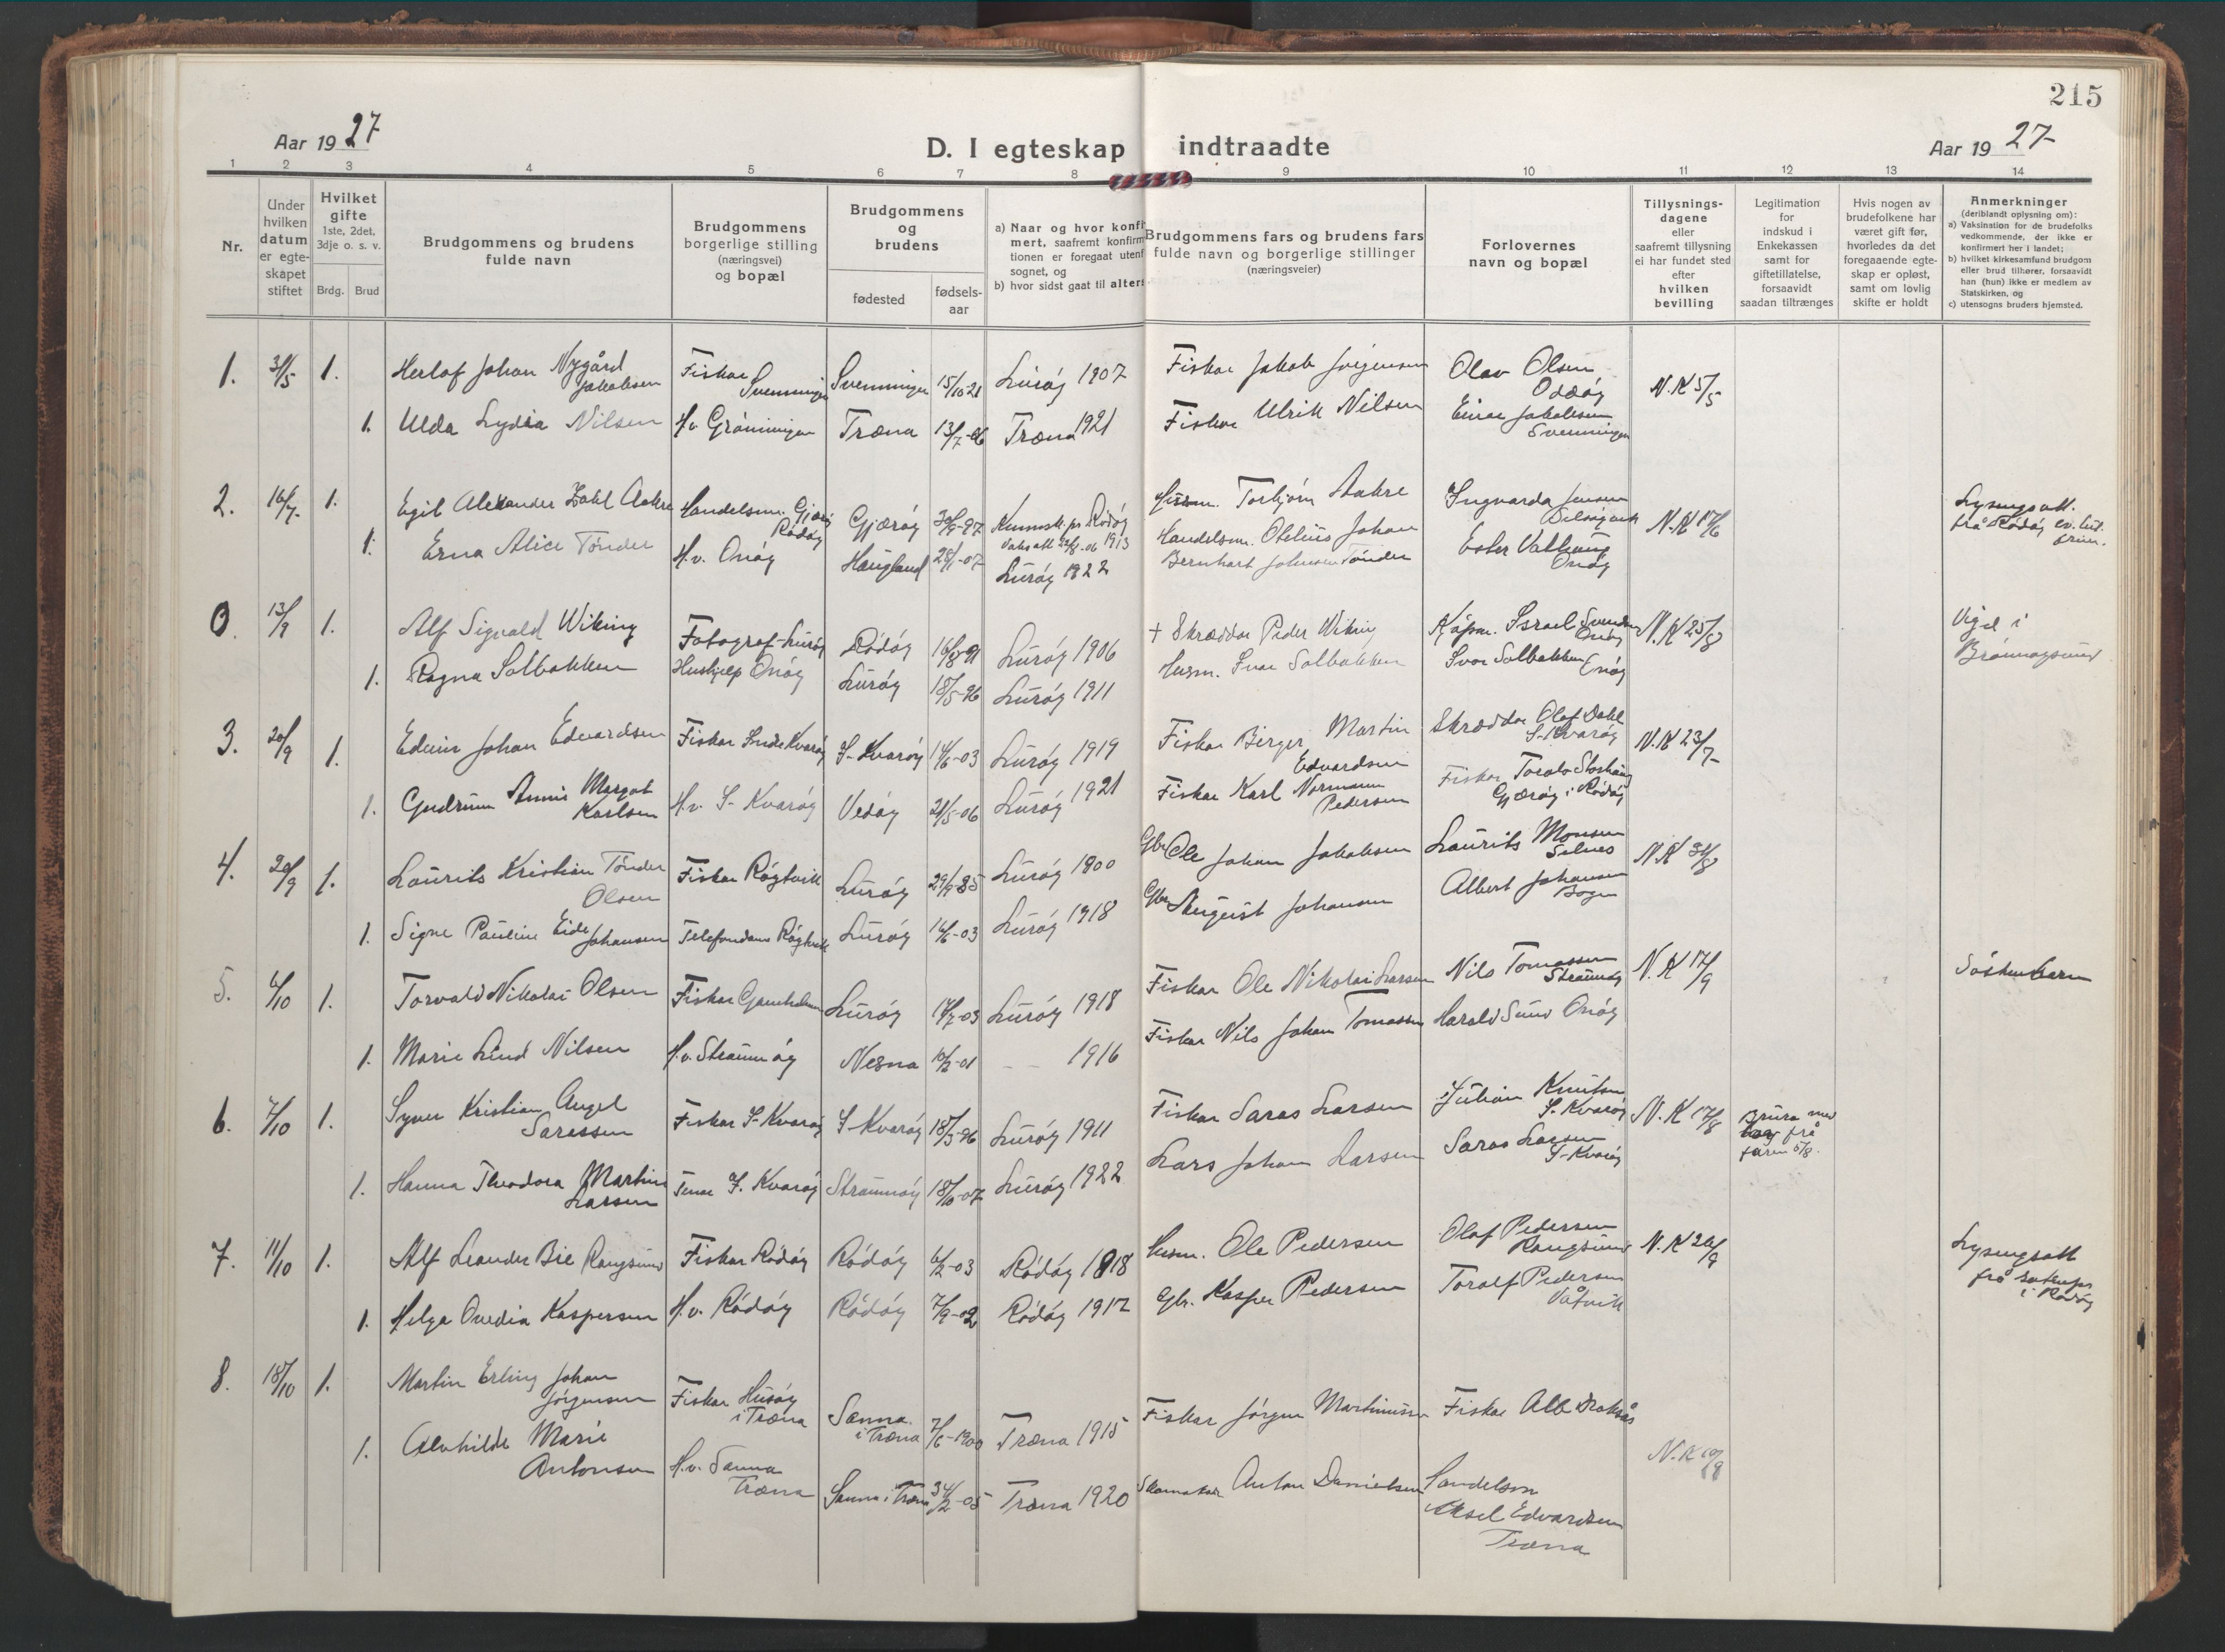 215
Aar 1927
D. I egteskap indtraadte
Aar 1927
1 2 3 4 5 6 7 8 9 10 11 12 13 14
Nr.
Under hvilken datum er egte-skapet stiftet
Hvilket gifte 1ste, 2det, 3dje o. s. v.
Brdg. Brud
Brudgommens og brudens fulde navn
Brudgommens borgerlige stilling (næringsvei) og bopæl
Brudgommens og brudens
fødested
fødsels-aar
a) Naar og hvor konfi
mert, saafremt konfirm
tionen er foregaat utenf
sognet, og
b) hvor sidst gaat til alters
Brudgommens fars og brudens fars
fulde navn og borgerlige stillinger
(næringsveier)
Forlovernes
navn og bopæl
Tillysnings-
dagene
eller
saafremt tillysning
ei har fundet sted
efter
hvilken
bevilling
Legitimation
for
indskud i
Enkekassen
samt for
giftetillatelse,
forsaavidt
saadan tiltrænges
Hvis nogen av
brudefolkene har
været gift før,
hvorledes da det
foregaaende egte-
skap er opløst,
samt om lovlig
skifte er holdt
Anmerkninger
(deriblandt oplysning om):
a) Vaksination for de brudefolks
vedkommende, der ikke er
konfirmert her i landet;
b) hvilket kirkesamfund brudgom
eller brud tilhører, forsaavidt
han (hun) ikke er medlem av
Statskirken, og
c) utensogns bruders hjemsted.
1. 31/5 1. Herlof Johan Nygård Jakobsen Fiskar Svenningen Svenningen Lurøy 1907 Fiskar Jakob Jørgensen Olav Olsen N.K 5/5
1. Ulda Lydia Nilsen H.v Grønningen Træna 13/7-06 Træna 1921 Fiskar Ulrik Nilsen Einar Jakobsen Svenningen
2. 16/7 1. Egil Alexander Dahl Aakre Handelsm. Gjærøy Rødøy Gjærøy Rødøy 1913 Husm. Torbjørn Aakre Ingvarda Jensen N.K 17/6 Lysingsatt. frå Rødøy
1. Erna Alice Tønder H.v. Onøy Haugland 28/1-07 Lurøy 1922 Handelsm. Otelius Johan Bernhart Johnsen Tønder Ester Onøy
0. 13/9 1. Alf Sigvald Wiking Fotograf Lurøy Rødøy 16/8-91 Lurøy 1906 + Skræddar Peder Wiking Israel Svendsen Onøy N.K 25/8 Vigd i Brønnøysund
1. Ragna Solbakken Hushjelp Onøy Lurøy 18/5-96 Lurøy 1911 Husm. Ivar Solbakken Ivar Solbakken Onøy
3. 20/9 1. Edvin Johan Edvardsen Fiskar Indre Kvarøy I-Kvarøy 14/6-03 Lurøy 1919 Fiskar Birger Martin Edvardsen Skræddar Olaf Dahl I-Kvarøy N.K 23/7
1. Gudrun Annie Margot Karlsen H.v. I-Kvarøy Vedøy 21/5-06 Lurøy 1921 Fiskar Karl Normann Pedersen Fiskar Gjærøy i Rødøy
4. 20/9 1. Laurits Kristian Tønder Olsen Fiskar Røytvik Lurøy 29/9-85 Lurøy 1900 Gbr Ole Johan Jakobsen Laurits Monsen Selnes N.K 31/8
1. Signe Pauline Eide Johansen Telefondame Røytvik Lurøy 16/6-03 Lurøy 1918 Gbr August Johansen Albert Johansen Bogen
5. 6/10 1. Torvald Nikolai Olsen Fiskar Lurøy 14/7-03 Lurøy 1918 Fiskar Ole Nikolai Larsen Nils Tomassen Straumøy N.K 17/9 Søskenbarn
1. Marie Lind Nilsen H.v. Straumøy Nesna 10/2-01 - - 1916 Fiskar Nils Johan Tomassen Harald Sund Onøy
6. 7/10 1. Syver Kristian Angel Sarassen Fiskar I-Kvarøy I-Kvarøy 18/3-96 Lurøy 1911 Fiskar Saras Larsen Julian Knutsen I-Kvarøy N.K 17/8 Brura med frå faren 5/8.
1. Hanna Theodora Martine Larsen I. Kvarøy Straumøy Lurøy 1922 Lars Johan Larsen Saras Larsen I-Kvarøy
7. 11/10 1. Alf Leander Bie Rangsund Fiskar Rødøy Rødøy 6/2-03 Rødøy 1918 Husm. Ole Pedersen Olaf Pedersen Rangsund N.K 26/9 Lysingsatt frå i Rødøy
1. Helga Ovedia Kaspersen H.v. Rødøy Rødøy 7/9-02 Rødøy 1917 Gbr. Kasper Pedersen Toralf Pedersen Våtvik
8. 18/10 1. Martin Erling Johan Jørgensen Fiskar Husøy i Træna Sanna i Træna 7/6-1900 Træna 1915 Fiskar Jørgen Martinussen Fiskar Alb
1. Alvhilde Marie Antonsen H.v. Sanna Træna Sanna i Træna Træna 1920 Skomakar Anton Danielsen Handelsm Aksel Edvardsen Træna N.K 19/9